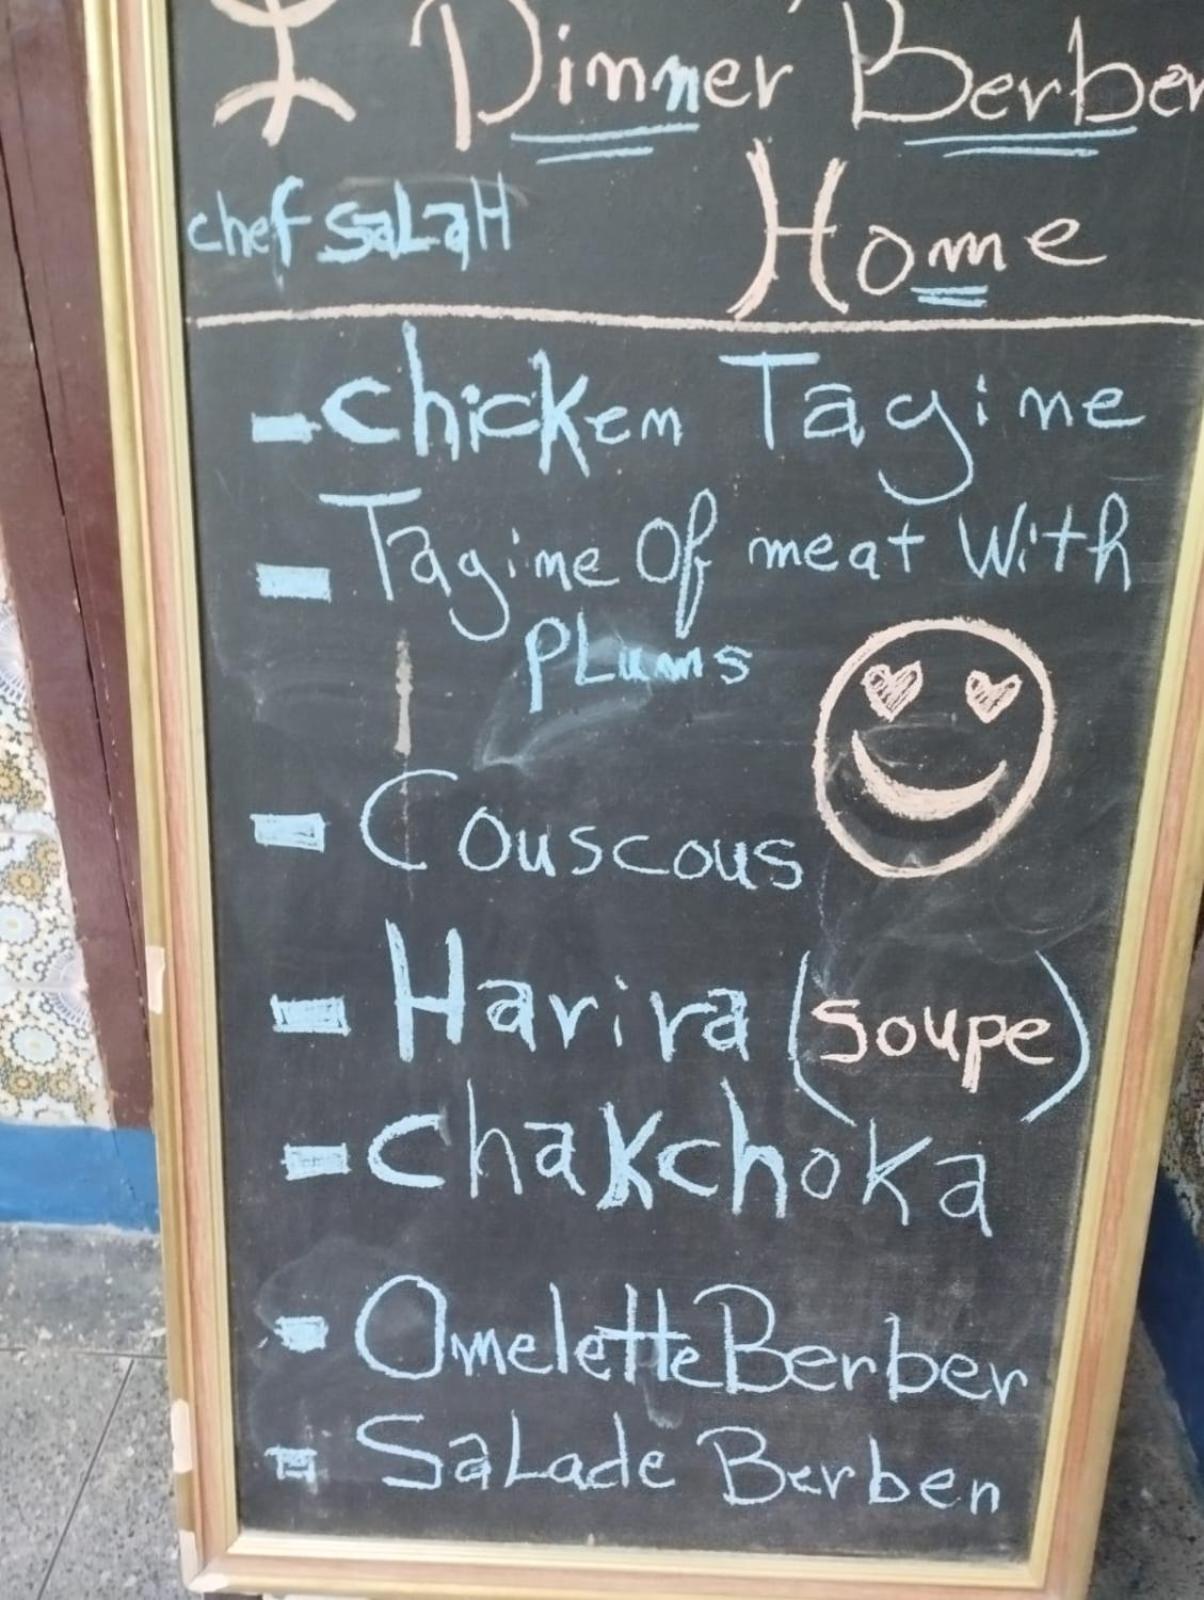 Dinner Berber
Home
chef SaLaH
- Chicken Tagine
- Tagine Of meat With
PLums
- Couscous
- Harira (Soupe)
- Chakchoka
- Omelette Berber
- SaLade Berben